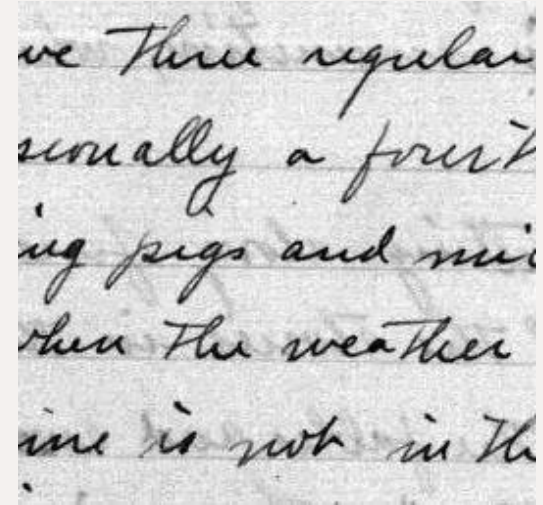 ve three regular
sionally a fourth
ing pigs and mi
when the weather
ine is not in th